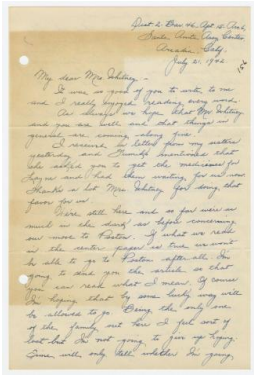 Dist 2 - Bar. 46 - Apt. 15 - Ave.
Santa Anita Assy. Center
Arcadia, Calif.
July 21, 1942
My dear Mrs. Whitney -
It was so good of you to write to me
and I really enjoyed reading every word.
As always we hope that Mr. Whitney
and you are well and that things in
general are coming along fine.
I received a letter from my sisters
yesterday and mentioned that
she asked you to get the medicines for
and had them waiting for me.
Thanks a lot Mrs. Whitney for doing that
favor for us.
We're still here and so far we're in
much in the dark as before concerning
our move to Poston. If what we read
in the center paper is true we won't
be able to go to Poston after all. I'm
going to send you the article so that
you can read what I mean. Of course
I'm hoping that by some lucky way we'll
be allowed to go. Being the only one
of the family out here I feel sort of
lost but I'm not going to give up hoping.
Time will only tell whether I'm going,